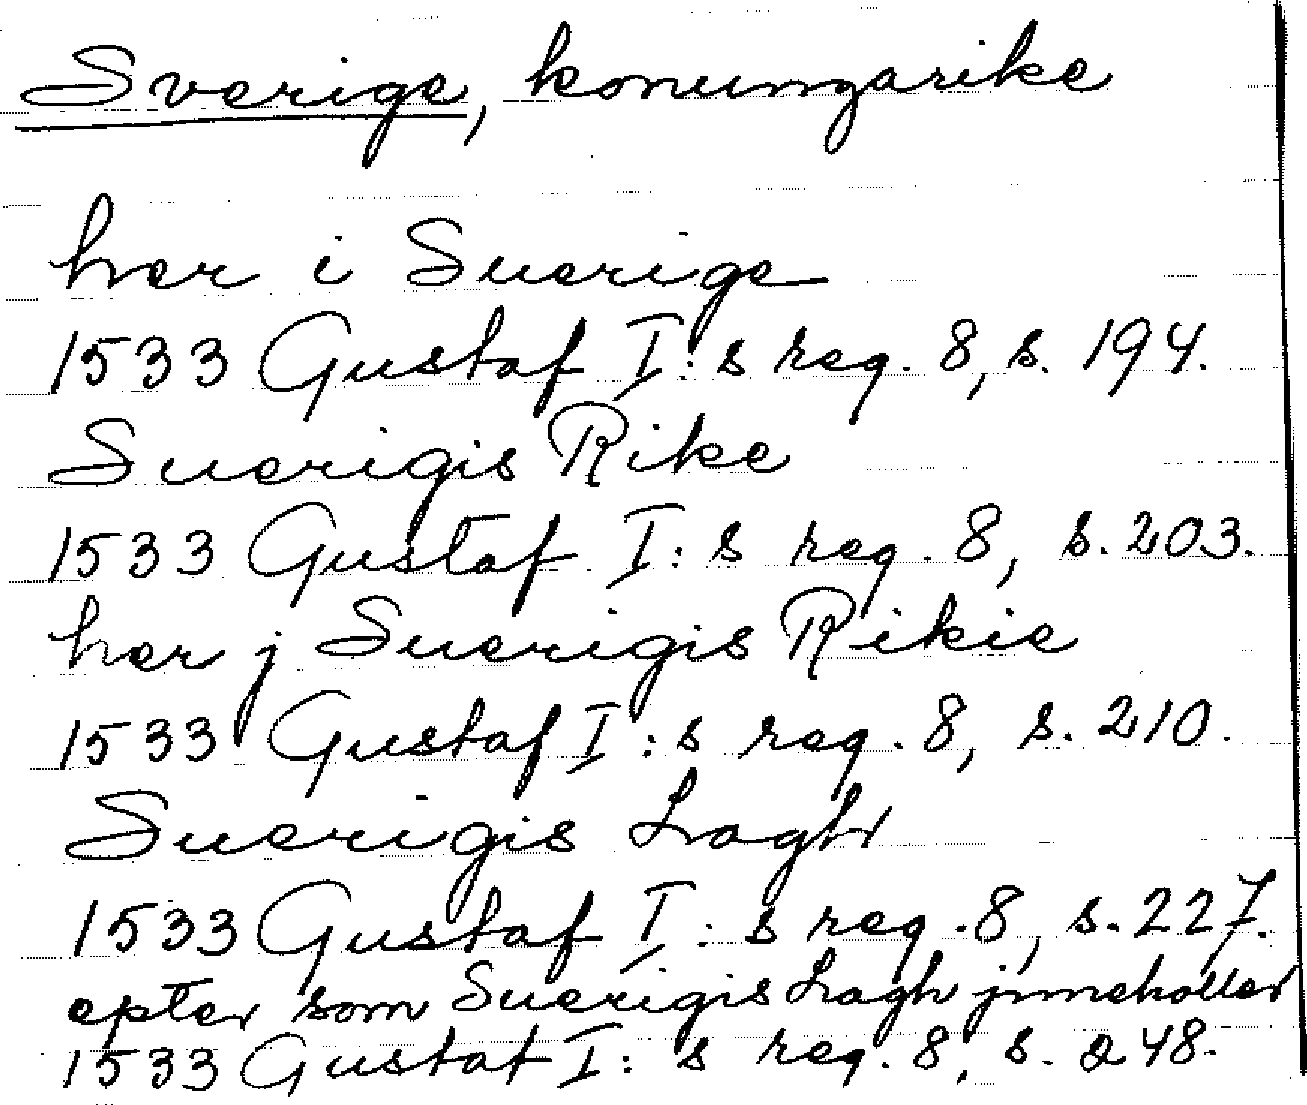 Sverige, konungarike
her i Suerige
1533 Gustaf I:s reg. 8, s. 194.
Suerigis Rike
1533 Gustaf I:s reg. 8, s. 203.
her j Suerigis Rikie
1533 Gustaf I:s reg. 8, s. 210.
Suerigis Lagh
1533 Gustaf I:s reg. 8, s. 227.
epter som Suerigis Lagh jnneholler
1533 Gustaf I:s reg. 8, s. 248.